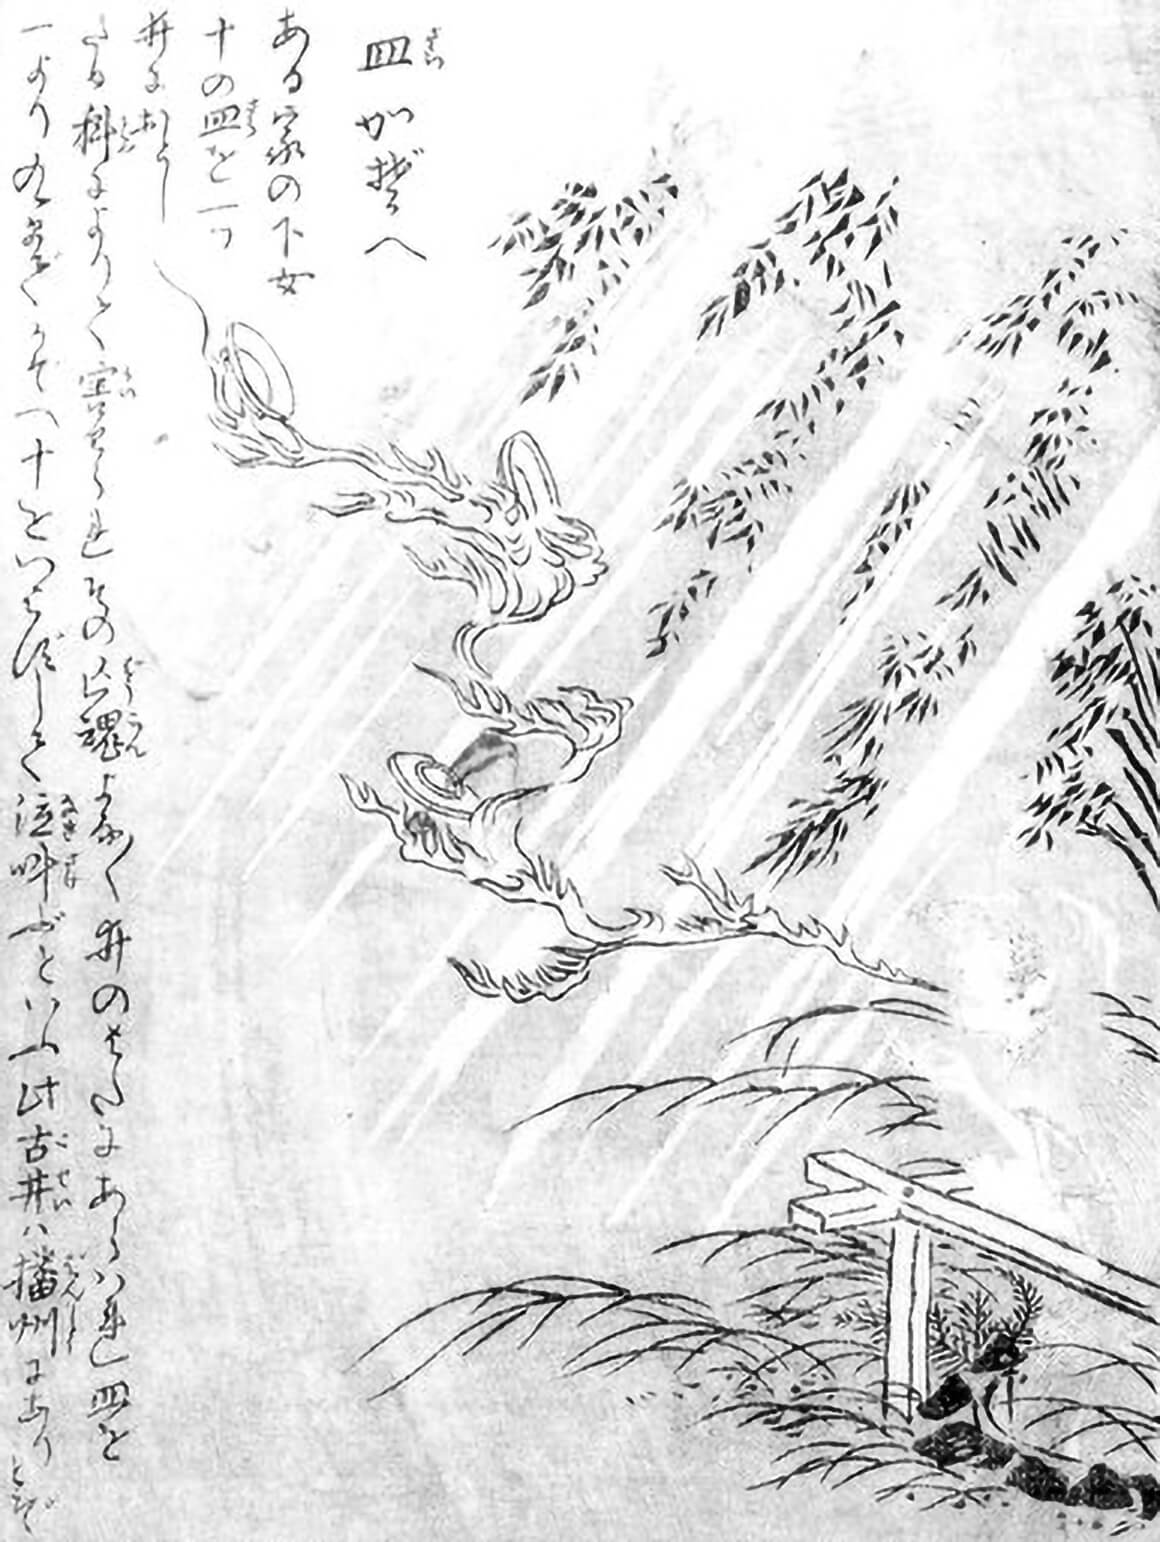 皿かぞへ
ある家の下女
十の皿を一ツ
井におとし
たる科によりて害せられその亡魂よな〳〵井のはたにあらはれ皿を
一より九までかぞへ十をいはずして泣叫ぶといふ此古井ハ播州にありとぞ